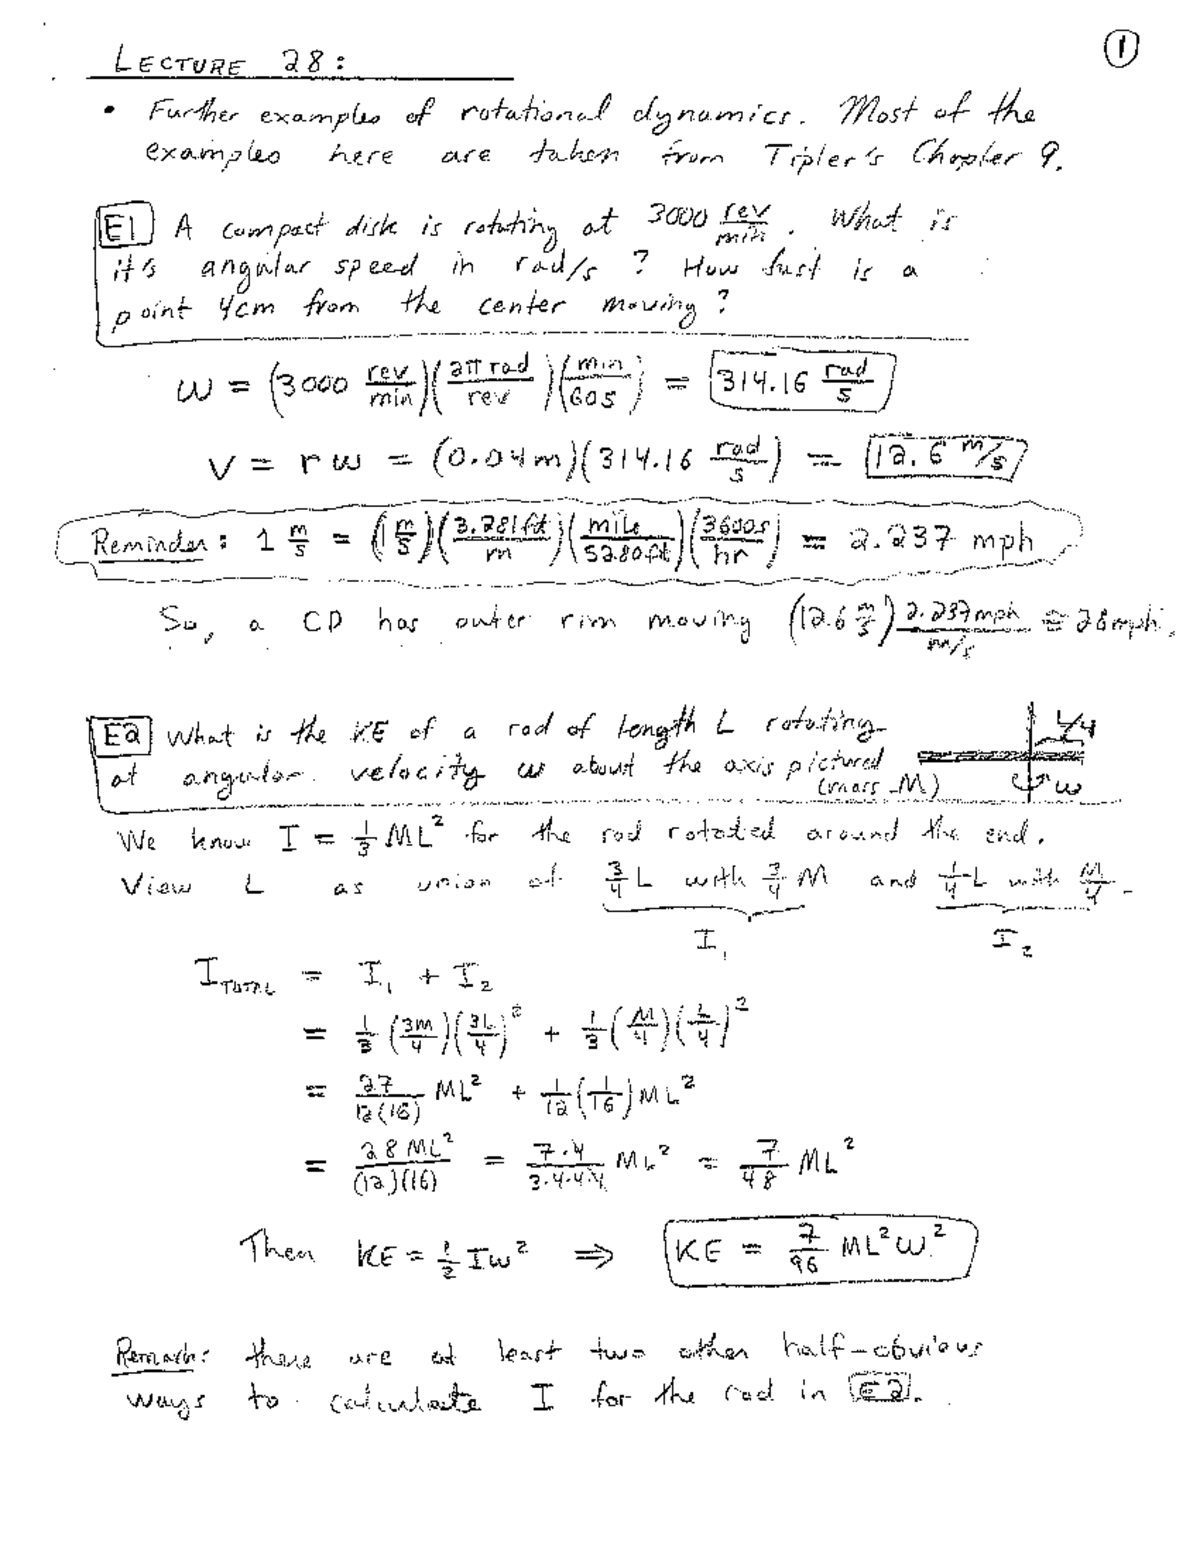 ①
LECTURE 28:
• Further examples of rotational dynamics. Most of the
examples here are taken from Tipler's Chapter 9.
E1 A compact disk is rotating at 3000 rev/min. What is
it's angular speed in rad/s? How fast is a
point 4cm from the center moving?
ω = (3000 rev/min)(2π rad/rev)(min/60s) = 314.16 rad/s
v = rω = (0.04m)(314.16 rad/s) = 12.6 m/s
Reminder: 1 m/s = (1 m/s)(3.281ft/m)(mile/5280ft)(3600s/hr) = 2.237 mph
So, a CD has outer rim moving (12.6 m/s) 2.237mph/m/s ≅ 28mph.
E2 What is the KE of a rod of length L rotating
at angular velocity ω about the axis pictured
(mass M)
L/4
ω
We know I = 1/3 ML² for the rod rotated around the end.
View L as union of 3/4 L with 3/4 M and 1/4 L with M/4.
I₁ I₂
I_TOTAL = I₁ + I₂
= 1/3 (3M/4)(3L/4)² + 1/3 (M/4)(L/4)²
= 27/12(16) ML² + 1/12 (1/16) ML²
= 28ML²/(12)(16) = 7·4/3·4·4·4 ML² = 7/48 ML²
Then KE = 1/2 Iω² ⇒ KE = 7/96 ML²ω².
Remark: there are at least two other half-obvious
ways to calculate I for the rod in E2.